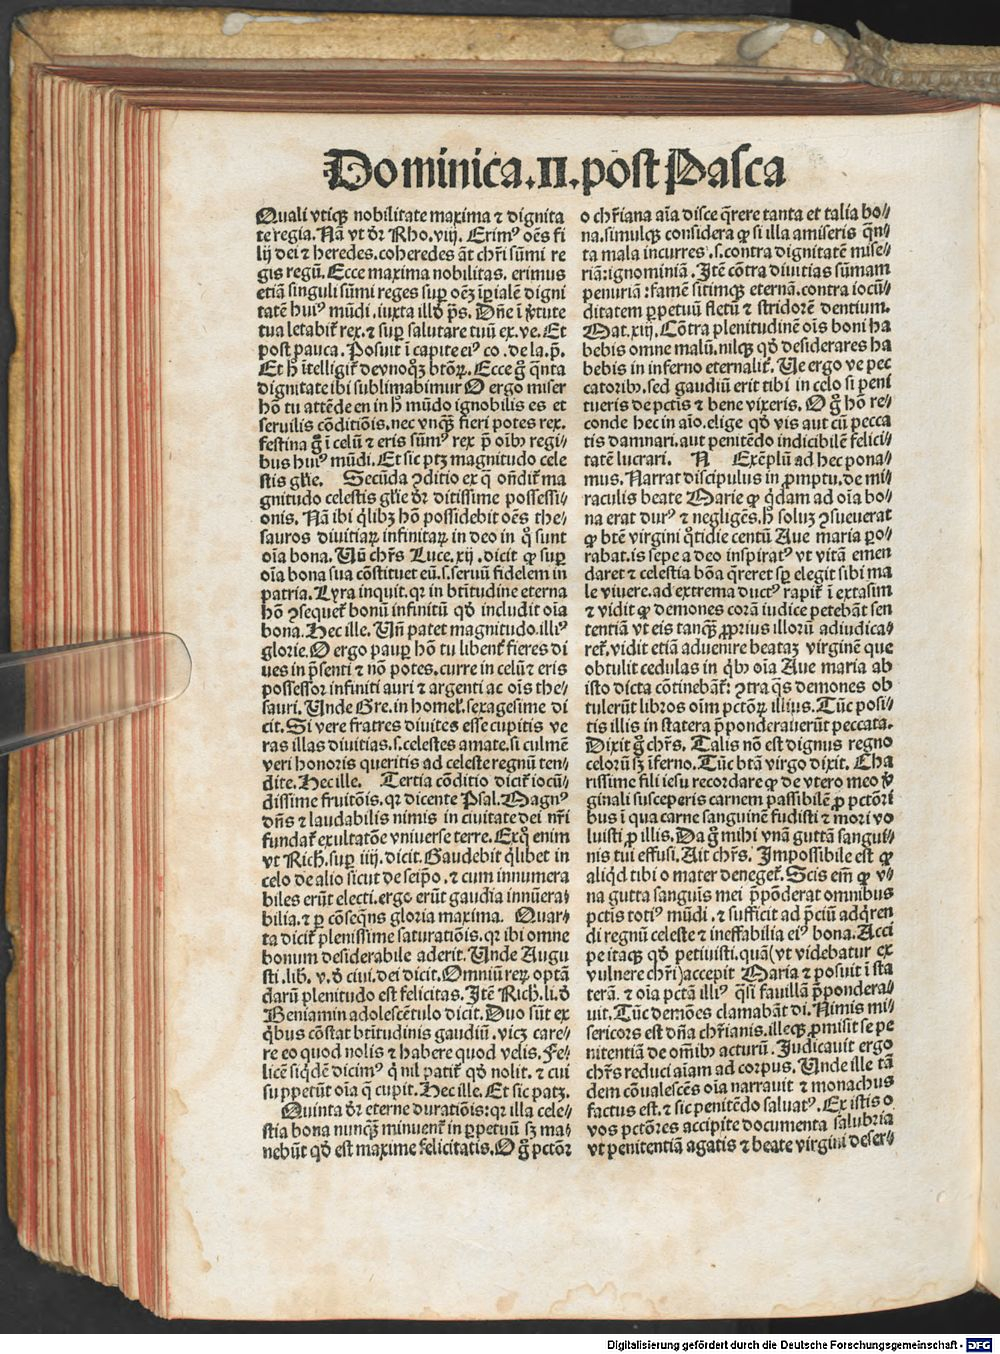 Dominica.II.post Pasca
Quali vtiqꝫ nobilitate maxima ⁊ dignita
te regia. Nā vt dr̄ Rho.viij. Erimꝰ oēs fi
lij dei ⁊ heredes.coheredes āt chr̄i sūmi re
gis regū. Ecce maxima nobilitas. erimus
etiā singuli sūmi reges suꝑ oēꝫ īꝑialē digni
tatē huiꝰ mūdi.iuxta illð pš. Dn̄e ī ꝟtute
tua letabiť rex.⁊ suꝑ salutare tuū ex.ve. Et
post pauca. Posuit ī capite eiꝰ co.de la.p̄.
Et ħ ītelligiť de vnoqꝫ btōꝝ. Ecce g̊ q̄nta
dignitate ibi sublimabimur O ergo miser
hō tu attēde en in ħ mūdo ignobilis es et
seruilis cōditiōis.nec vnqꝫ fieri potes rex.
festina g̊ ī celū ⁊ eris sūmꝰ rex p̄ oībꝫ regi⸗
bus huiꝰ mūdi. Et sic ptꝫ magnitudo cele
stis gl̄ie. Secūda ꝯditio ex q̄ on̄diť ma
gnitudo celestis gl̄ie dr̄ ditissime possessi⸗
onis. Nā ibi q̄libꝫ hō possidebit oēs the⸗
sauros diuitiaꝝ infinitaꝝ in deo in q̊ sunt
oīa bona. Vn̄ chr̄s Luce.xij.dicit ꝙ suꝑ
oīa bona sua cōstituet eū.s.seruū fidelem in
patria. Lyra inquit.qr in btītudine eterna
hō ꝯsequeť bonū infinitū qð includit oīa
bona. Hec ille. Vn̄ patet magnitudo illiꝰ
glorie. O ergo pauꝑ hō tu libenť fieres di
ues in p̄senti ⁊ nō potes.curre in celū ⁊ eris
possessor infiniti auri ⁊ argenti ac oīs the⸗
sauri. Unde Gre. in homel̄.sexagesime di
cit. Si vere fratres diuites esse cupitis ve
ras illas diuitias.s.celestes amate.si culmē
veri honoris queritis ad celeste regnū ten⸗
dite. Hec ille. Tertia cōditio diciť iocū⸗
dissime fruitōis.qr dicente Psal. Magnꝰ
dn̄s ⁊ laudabilis nimis in ciuitate dei nr̄i
fundať exultatōe vniuerse terre. Ex q̊ enim
vt Rich.suꝑ iiij.dicit. Gaudebit q̄libet in
celo de alio sicut de seip̄o.⁊ cum innumera
biles erūt electi.ergo erūt gaudia innūera⸗
bilia.⁊ ꝑ cōseq̄ns gloria maxima. Quar⸗
ta diciť plenissime saturatiōis.qr ibi omne
bonum desiderabile aderit. Unde Augu
sti.lib.v.ð ciui.dei dicit. Omniū reꝝ optā
darū plenitudo est felicitas. Itē Rich.li.ð
Beniamin adolescētulo dicit. Duo sūt ex
q̄bus cōstat btītudinis gaudiū.vicꝫ care⸗
re eo quod nolis ⁊ habere quod velis. Fe⸗
licē siqðē dicimꝰ q̄ nil patiť qð nolit.⁊ cui
suppetūt oīa q̄ cupit. Hec ille. Et sic patꝫ.
Quinta dr̄ eterne duratiōis:qr illa cele⸗
stia bona nunqꝫ minuenť in ꝑpetuū sꝫ ma⸗
nebūt qð est maxime felicitatis. O g̊ pctōr
o chr̄iana aīa disce q̄rere tanta et talia bo⸗
na.simulqꝫ considera ꝙ si illa amiseris q̄n⸗
ta mala incurres.s.contra dignitatē mise⸗
riā:ignominiā. Itē cōtra diuitias sūmam
penuriā:famē sitimqꝫ eternā.contra iocū⸗
ditatem ꝑpetuū fletū ⁊ stridorē dentium.
Mat.xiij. Cōtra plenitudinē oīs boni ha
bebis omne malū.nilqꝫ qð desiderares ha
bebis in inferno eternaliť. Ue ergo ve pec
catoribꝫ.sed gaudiū erit tibi in celo si peni
tueris de pctīs ⁊ bene vixeris. O g̊ hō re⸗
conde hec in aīo.elige qð vis aut cū pecca
tis damnari.aut penitēdo indicibilē felici
tatē lucrari. N Exēplū ad hec pona⸗
mus. Narrat discipulus in ꝓmptu.de mi⸗
raculis beate Marie ꝙ q̄dam ad oīa bo⸗
na erat durꝰ ⁊ negligēs.ħ soluꝫ ꝯsueuerat
ꝙ btē virgini q̊tidie centū Aue maria ꝓo⸗
rabat.is sepe a deo inspiratꝰ vt vitā emen
daret ⁊ celestia bōa q̄reret sꝑ elegit sibi ma
le viuere.ad extrema ductꝰ rapiť ī extasim
⁊ vidit ꝙ demones corā iudice petebāt sen
tentiā vt eis tanqꝫ ꝓprius illorū adiudica⸗
reť.vidit etiā aduenire beataꝫ virginē que
obtulit cedulas in q̄bꝫ oīa Aue maria ab
isto dicta cōtinebāť: ꝯtra q̄s demones ob
tulerūt libros oīm pctōꝝ illius. Tūc posi⸗
tis illis in statera p̄ponderauerūt peccata.
Dixit g̊ chr̄s. Talis nō est dignus regno
celorū sꝫ īferno. Tūc btā virgo dixit. Cha
rissime fili iesu recordare ꝙ de vtero meo ꝟ
ginali susceperis carnem passibilē ꝓ pctōri
bus ī qua carne sanguinē fudisti ⁊ mori vo
luisti ꝓ illis. Da g̊ mihi vnā guttā sangui⸗
nis tui effusi. Ait chr̄s. Impossibile est ꝙ
aliqð tibi o mater denegeť. Scis em̄ ꝙ v⸗
na gutta sanguīs mei p̄pōderat omnibus
pctīs totiꝰ mūdi.⁊ sufficit ad p̄ciū adq̄ren
di regnū celeste ⁊ ineffabilia eiꝰ bona. Acci
pe itaqꝫ qð petiuisti.quā(vt videbatur ex
vulnere chr̄i)accepit Maria ⁊ posuit ī sta
terā.⁊ oīa pctā illiꝰ q̄si fauillā p̄pondera⸗
uit. Tūc demōes clamabāt di. Nimis mi⸗
sericors est dn̄a chr̄ianis.illeqꝫ ꝓmisit se pe
nitentiā de om̄ibꝫ acturū. Iudicauit ergo
chr̄s reduci aīam ad corpus. Unde ille tā
dem cōualescēs oīa narrauit ⁊ monachus
factus est.⁊ sic penitēdo saluatꝰ. Ex istis o
vos pctōres accipite documenta salubria
vt penitentiā agatis ⁊ beate virgini deser⸗
Digitalisierung gefördert durch die Deutsche Forschungsgemeinschaft - DFG